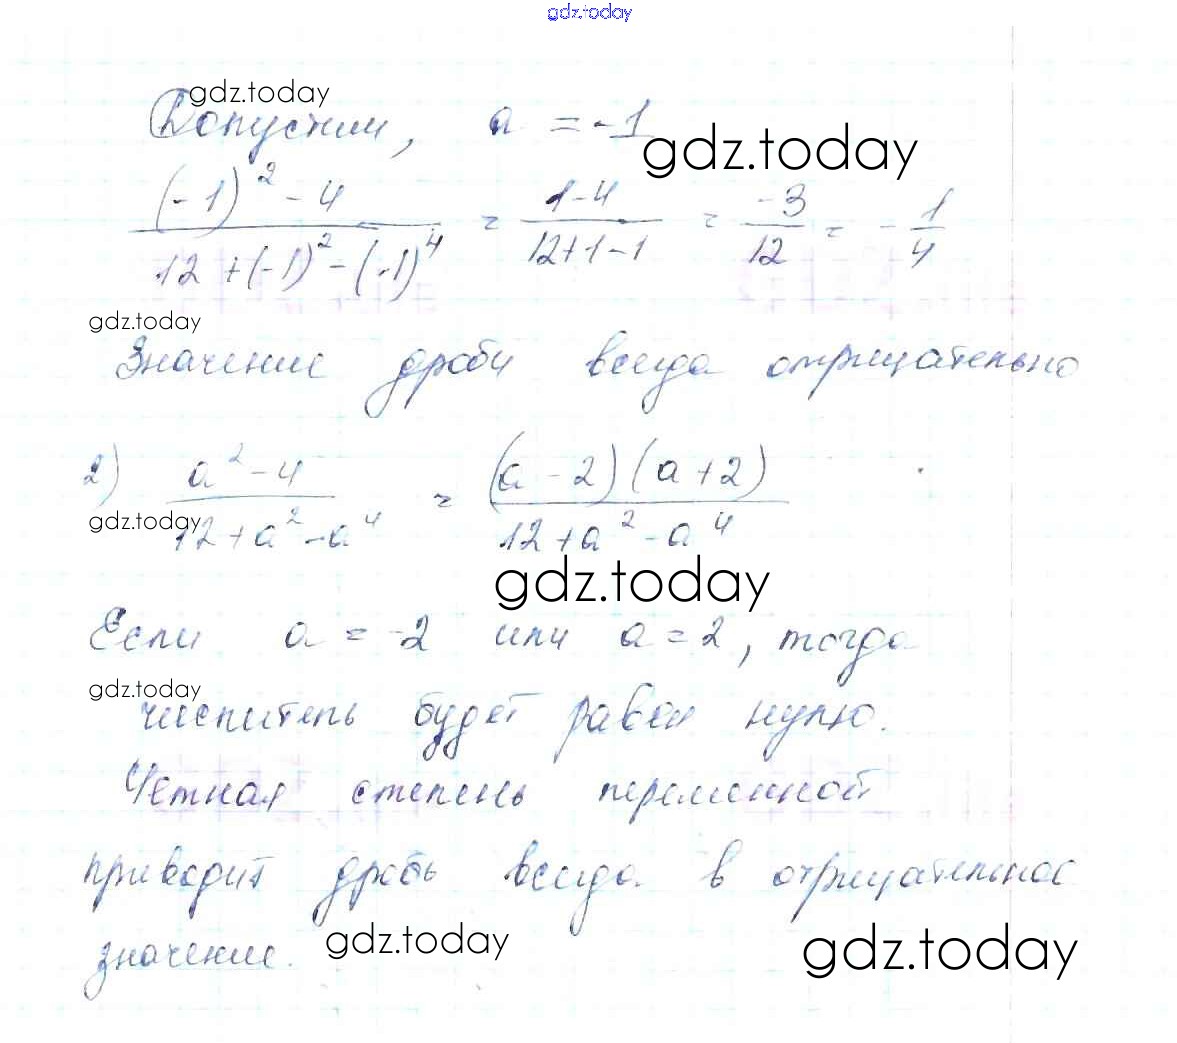 gdz.today
gdz.today
Допустим, a = -1
gdz.today
((-1)^2 - 4)/(12 + (-1)^2 - (-1)^4) = (1-4)/(12+1-1) = (-3)/12 = -1/4
gdz.today
Значение дроби всегда отрицательно
2) (a^2 - 4)/(12 + a^2 - a^4) = ((a-2)(a+2))/(12 + a^2 - a^4)
gdz.today
gdz.today
Если a = -2 или a = 2, тогда
gdz.today
числитель будет равен нулю.
Четная степень переменной
приводит дробь всегда в отрицательное
значение.
gdz.today
gdz.today